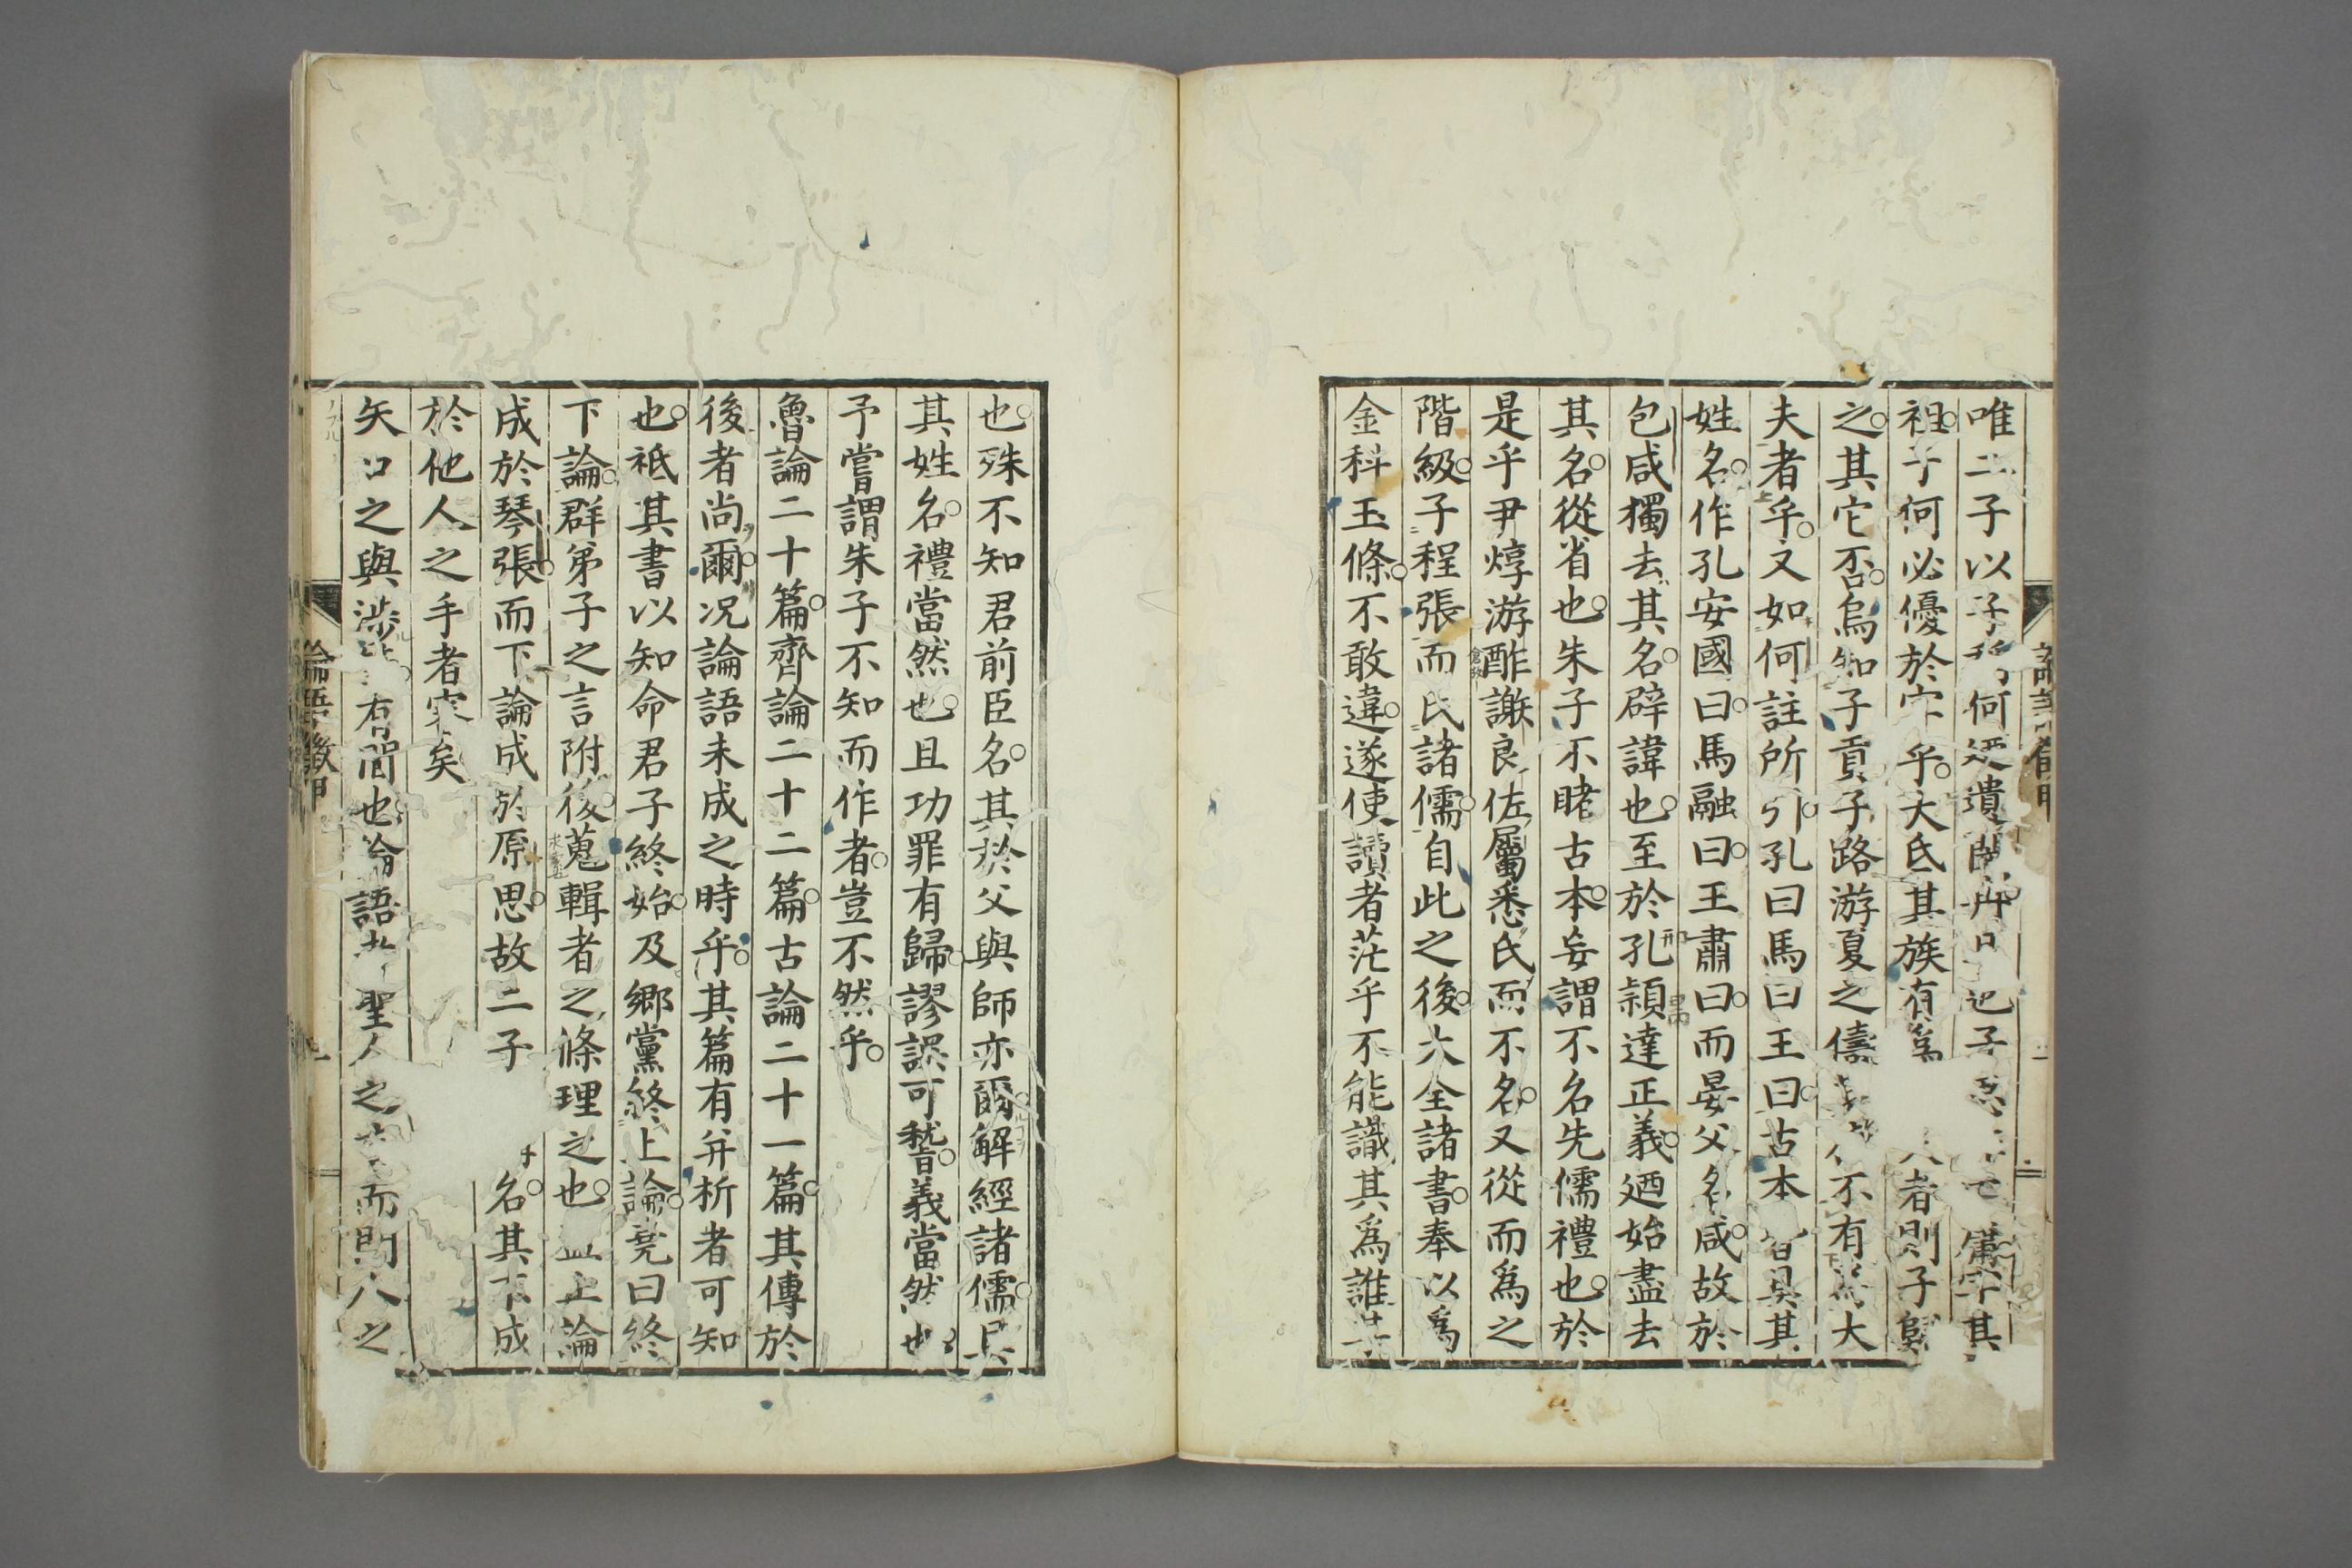 唯二子以子何遺閔冉子其
祖子何必優於它乎大氐其族有為者則子與
之其它否烏知子貢子路游夏之儔不有為大
夫者乎又如何註所引孔曰馬曰王曰古本皆具其
姓名作孔安國曰馬融曰王肅曰而晏父名咸故於
包咸獨去其名辟諱也至於孔穎達正義迺始盡去
其名從省也朱子不睹古本妄謂不名先儒禮也於
是乎尹焞游酢謝良佐屬悉氏而不名又從而為之
階級子程張而氏諸儒自此之後大全諸書奉以為
金科玉條不敢違遂使讀者茫乎不能識其為誰某
也殊不知君前臣名其於父與師亦爾解經諸儒具
其姓名禮當然也且功罪有歸謬誤可嵇義當然也
予嘗謂朱子不知而作者豈不然乎
魯論二十篇齊論二十二篇古論二十一篇其傳於
後者尚爾况論語未成之時乎其篇有并析者可知
也祇其書以知命君子終始及鄉黨終上論堯曰終
下論群弟子之言附後蒐輯者之條理之也蓋上論
成於琴張而下論成於原思故二子名其不成
於他人之手者審矣
矢口之與涉有間也論語者聖人之而門人之
論語徵甲